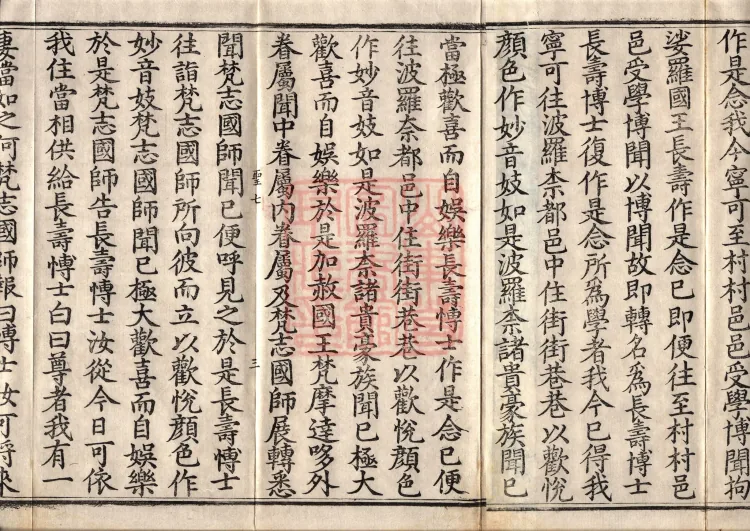 作是念我今寧可至村村邑邑受學博聞拘
娑羅國王長壽作是念已即便往至村村邑
邑受學博聞以博聞故即轉名爲長壽博士
長壽博士復作是念所爲學者我今已得我
寧可往波羅柰都邑中住街街巷巷以歡悅
顏色作妙音妓如是波羅柰諸貴豪族聞已
當極歡喜而自娛樂長壽博士作是念已便
往波羅柰都邑中住街街巷巷以歡悅顏色
作妙音妓如是波羅柰諸貴豪族聞已極大
歡喜而自娛樂於是加赦國王梵摩達哆外
眷屬聞中眷屬內眷屬及梵志國師展轉悉
聖七
三
聞梵志國師聞已便呼見之於是長壽博士
往詣梵志國師所向彼而立以歡悅顏色作
妙音妓梵志國師聞已極大歡喜而自娛樂
於是梵志國師告長壽博士汝從今日可依
我住當相供給長壽博士白曰尊者我有一
妻當如之何梵志國師報曰博士汝可將來